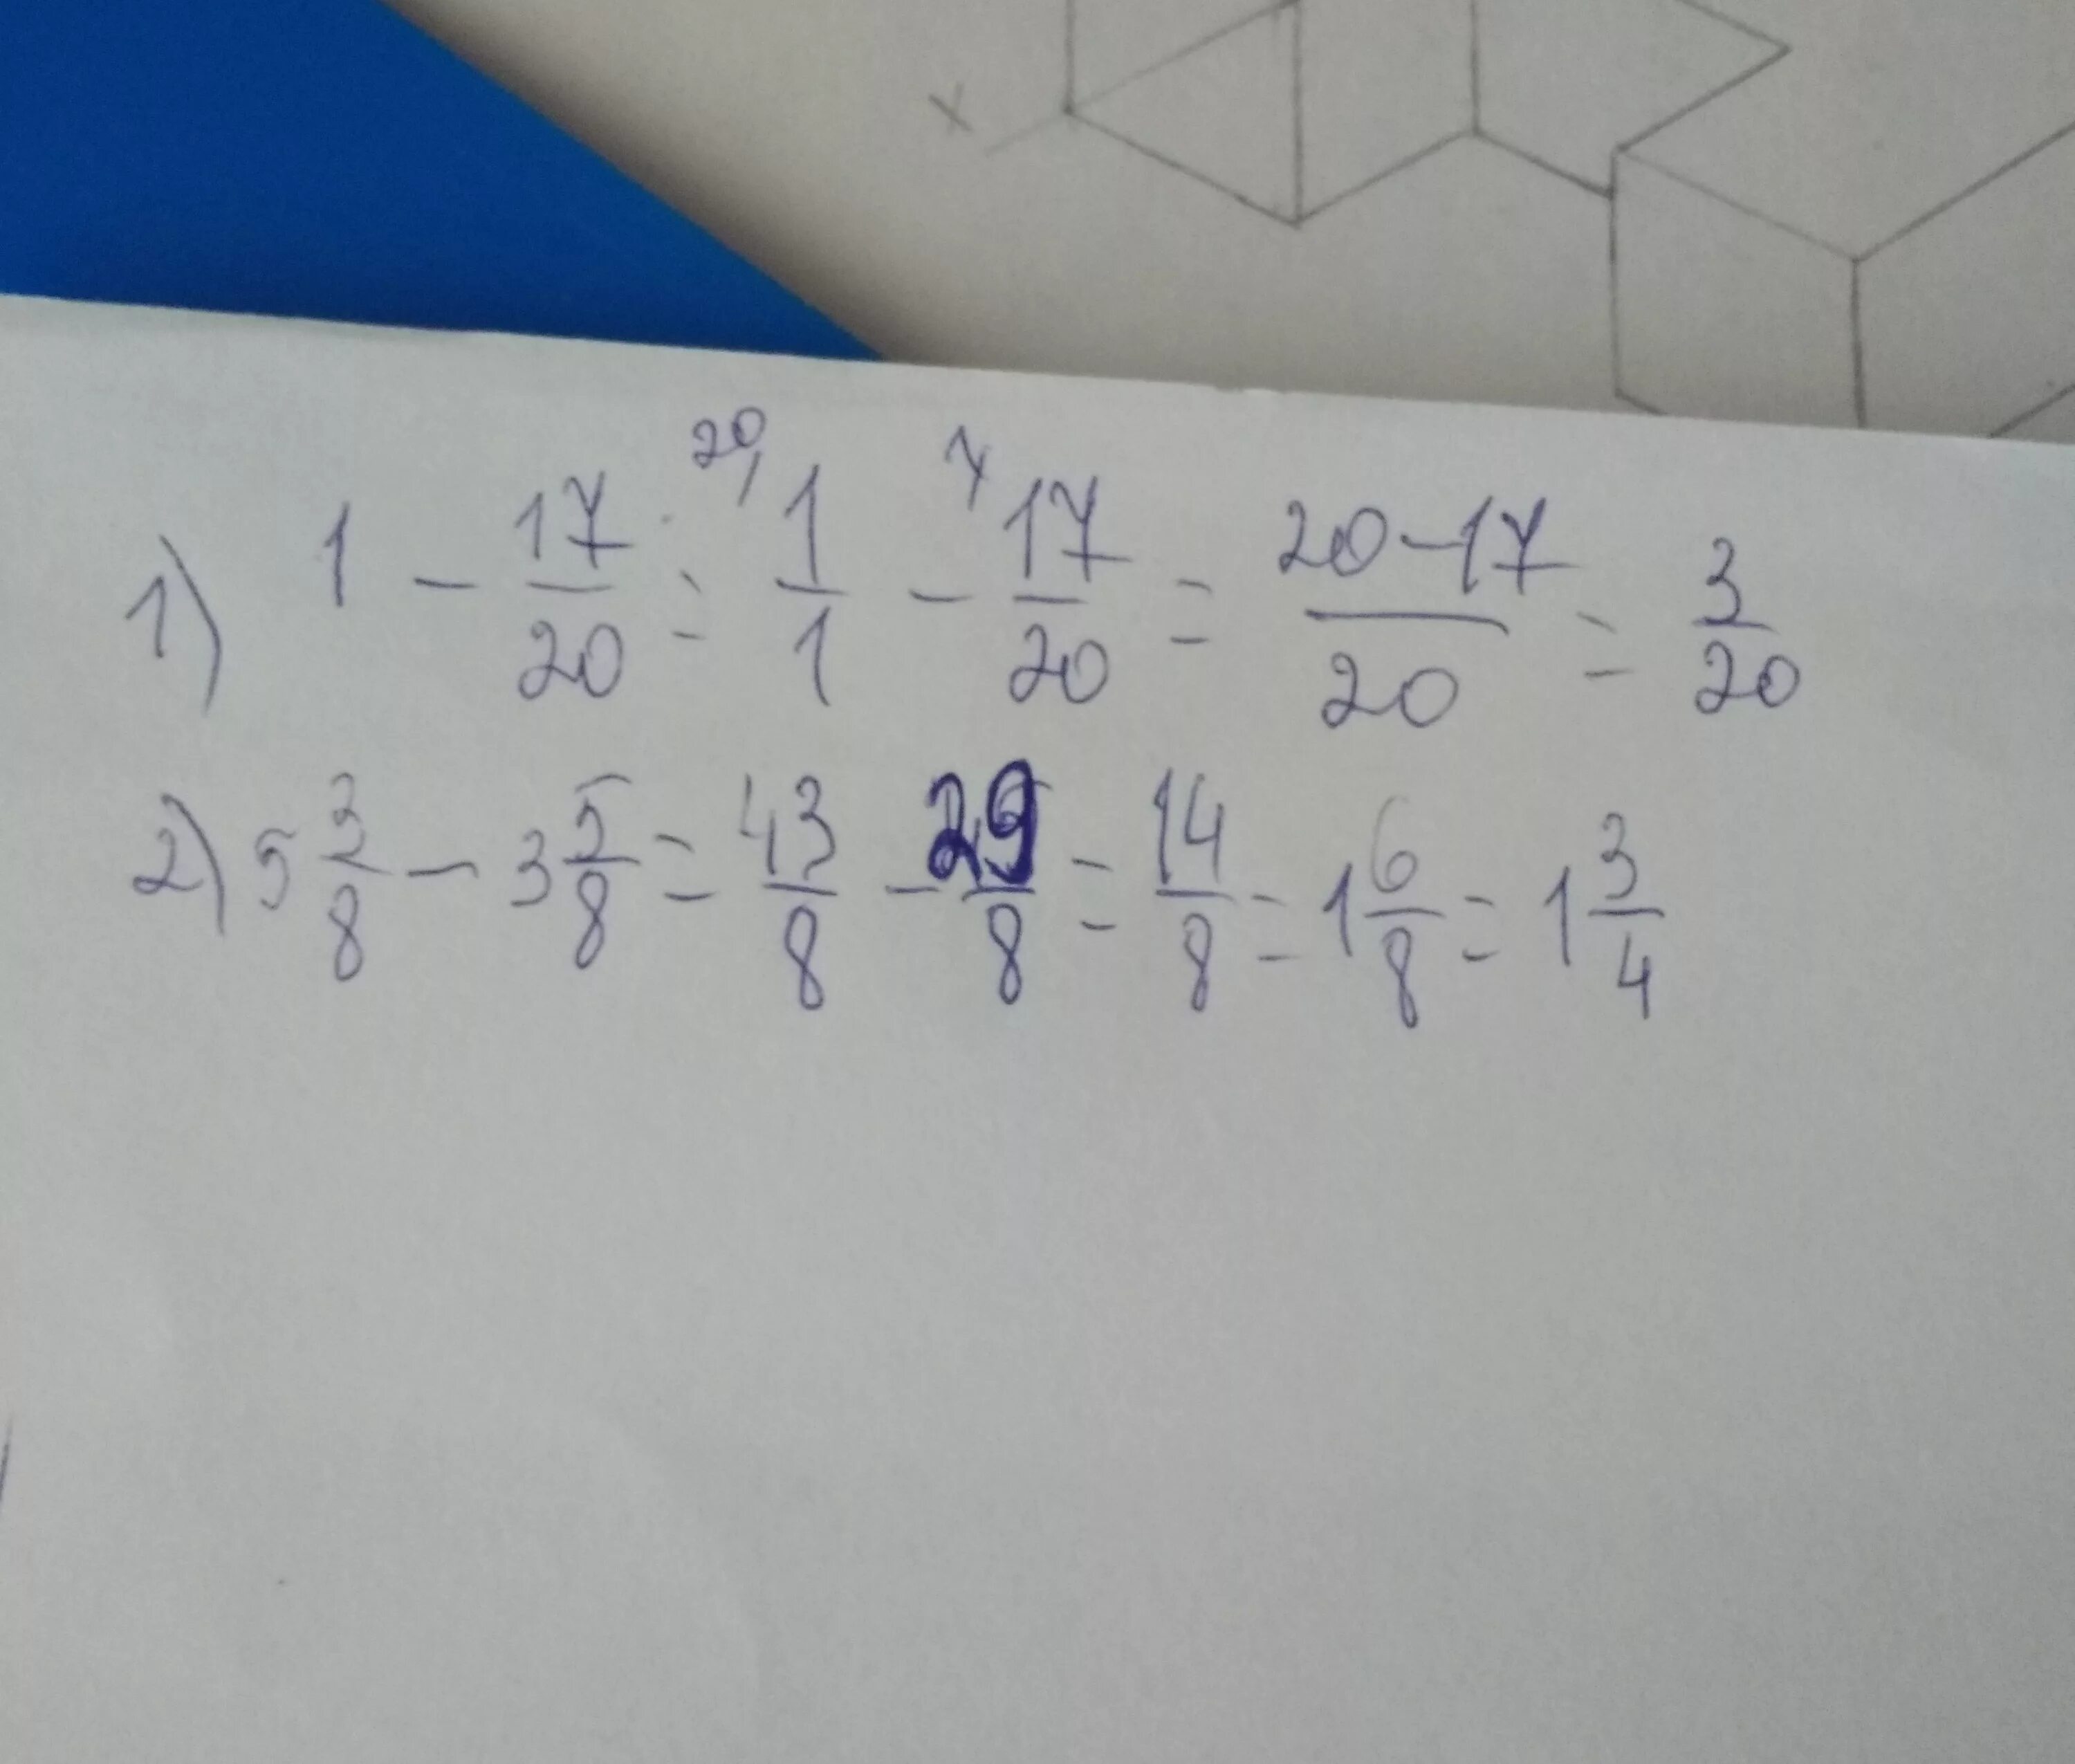 X
1) 1 - 17/20 = 20/ 1/1 - 1/ 17/20 = 20-17/20 = 3/20
2) 5 3/8 - 3 5/8 = 43/8 - 29/8 = 14/8 = 1 6/8 = 1 3/4